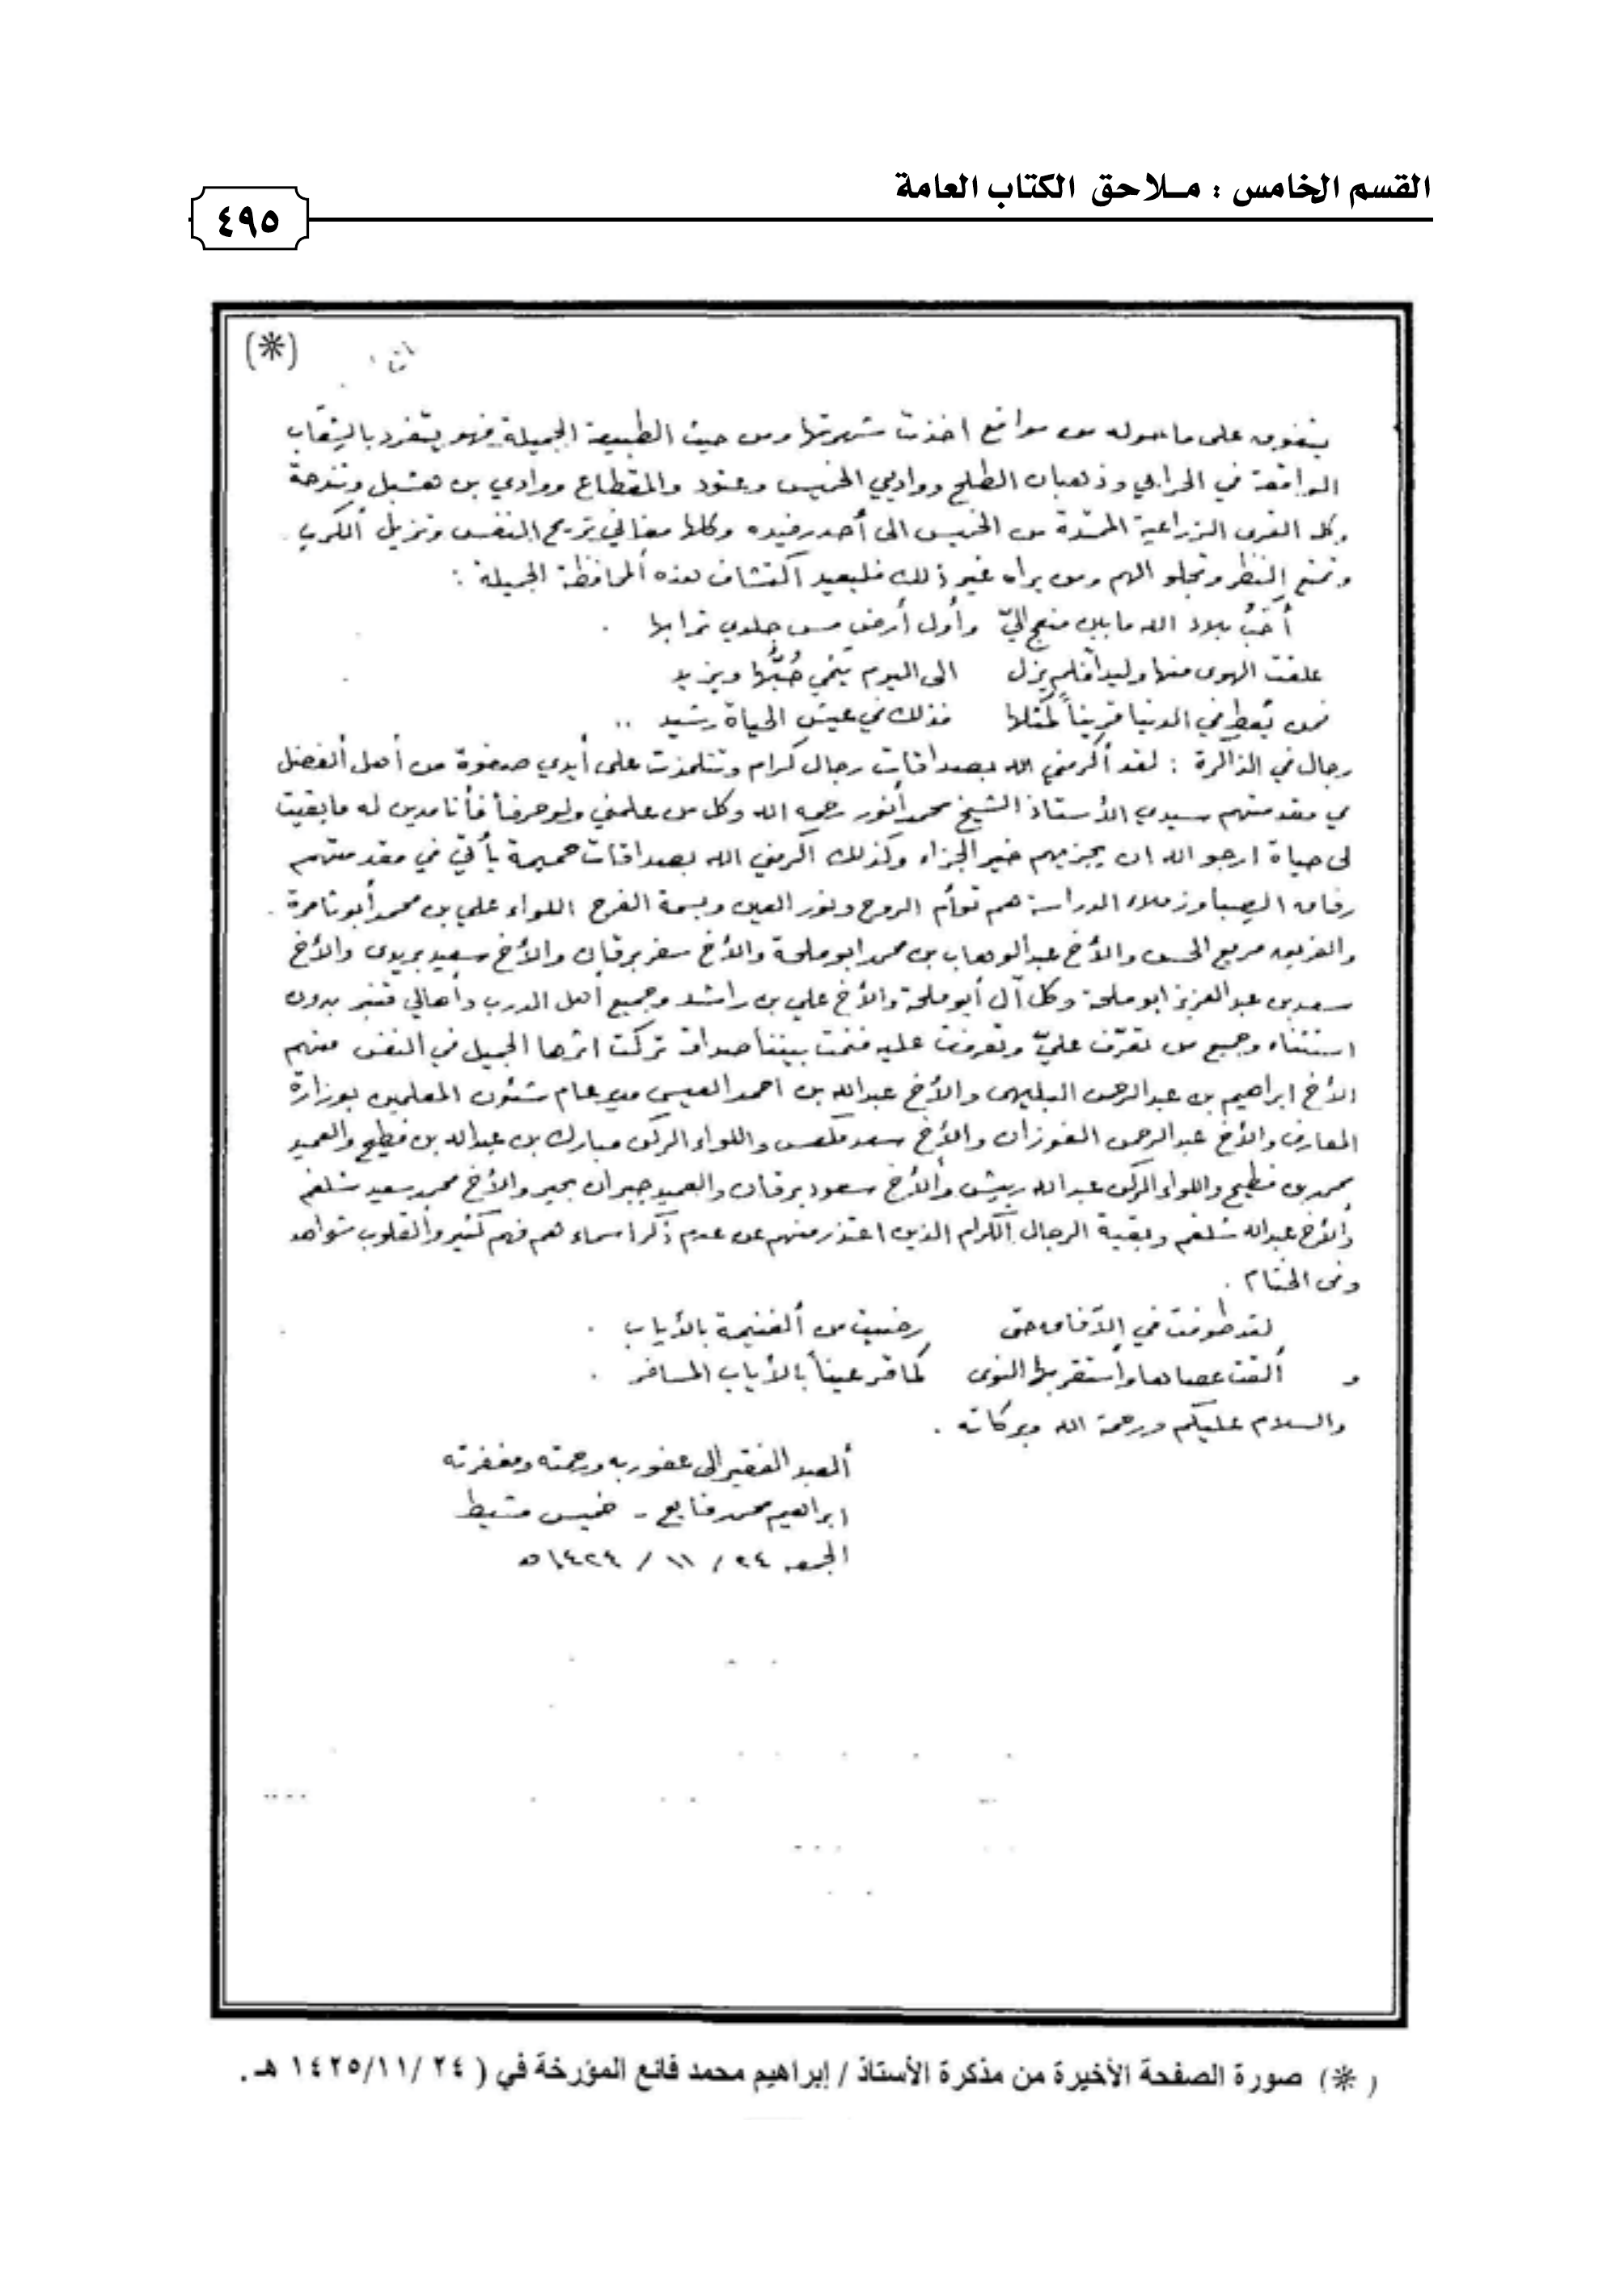 القسم الخامس : مـلاحق الكتاب العامة
٤٩٥
(*)
يتفوق على ما حوله من مواقع اخذت شهرتها ومن حيث الطبيعة الجميلة فهو يتفرد بالشعاب
الواقعة في الحرابي وذهبان الطلح ووادي الخميس وعتود والمقطاع ووادي بن هشبل وتندحة
وكل القرى الزراعية الممتدة من الخميس الى أحد رفيده وكلها مغاني تريح النفس وتزيل الكرب
وتمتع النظر وتجلو الهم ومن يراه غير ذلك فليعيد اكتشاف هذه المحافظة الجميلة :
أحَبُّ بلاد الله ما بين منعج اليّ وأول أرض مس جلدي ترابها .
علقت الهوى منها وليدا فلم يزل الى اليوم ينمي حُبُّها ويزيد
فمن يُعط في الدنيا قريناً كمثلها فذلك في عيش الحياة رشيد ..
رجال في الذاكرة : لقد أكرمني الله بصداقات رجال كرام وتتلمذت على أيدي صفوة من أهل الفضل
في مقدمتهم سيدي الأستاذ الشيخ محمد أنور رحمه الله وكل من علمني ولو حرفاً فأنا مدين له ما بقيت
لي حياة ارجو الله ان يجزيهم خير الجزاء وكذلك اكرمني الله بصداقات حميمة يأتي في مقدمتهم
رفاق الصبا وزملاء الدراسة هم توأم الروح ونور العين وبسمة الفرح اللواء علي بن محمد أبو ثامرة .
والفريق مريع الحسن والأخ عبد الوهاب بن محمد ابو ملحة والأخ سفر برقان والأخ سعيد بريدي والأخ
سعد بن عبد العزيز ابو ملحة وكل آل أبو ملحة والأخ علي بن راشد وجميع أهل الدرب وأهالي قنبر بدون
استثناء وجميع من تعرّف عليّ وتعرفت عليه فنمت بيننا صداقة تركت اثرها الجميل في النفس منهم
الأخ ابراهيم بن عبد الرحمن البليهي والأخ عبد الله بن احمد العيسى مدير عام شئون المعلمين بوزارة
المعارف والأخ عبد الرحمن الفوزان والأخ سعد ملعس واللواء الركن مبارك بن عبد الله بن فطيح والعميد
محمد بن فطيح واللواء الركن عبد الله ربيش والأخ سعود برقان والعميد جبران بحير والأخ محمد سعيد شلغم
والأخ عبد الله شلغم وبقية الرجال الكرام الذين اعتذر منهم عن عدم ذكر اسماءهم فهم كثير والقلوب شواهد
وفي الختام .
لقد طوفت في الآفاق حتى رضيت من الغنيمة بالأياب .
و ألقت عصاها وأستقر بها النوى كما قر عيناً بالأياب المسافر .
والسلام عليكم ورحمة الله وبركاته .
العبد الفقير الى عفو ربه ورحمته ومغفرته
ابراهيم محمد فايع - خميس مشيط
الجمعه ٢٤ / ١١ / ١٤٢٤ه
(*) صورة الصفحة الأخيرة من مذكرة الأستاذ / إبراهيم محمد فائع المؤرخة في ( ٢٤ /١٤٢٥/١١ هـ .